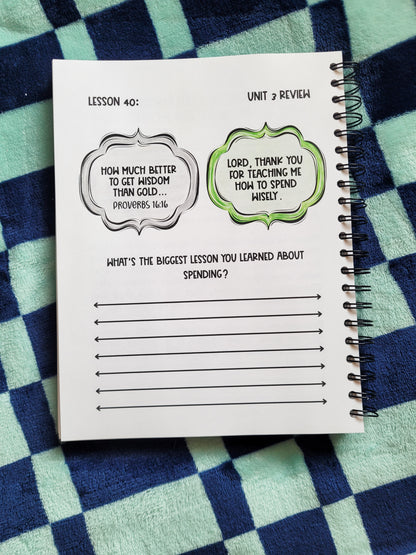 LESSON 40:
UNIT 3 REVIEW
HOW MUCH BETTER
TO GET WISDOM
THAN GOLD...
PROVERBS 16:16
LORD, THANK YOU
FOR TEACHING ME
HOW TO SPEND
WISELY.
WHAT'S THE BIGGEST LESSON YOU LEARNED ABOUT
SPENDING?